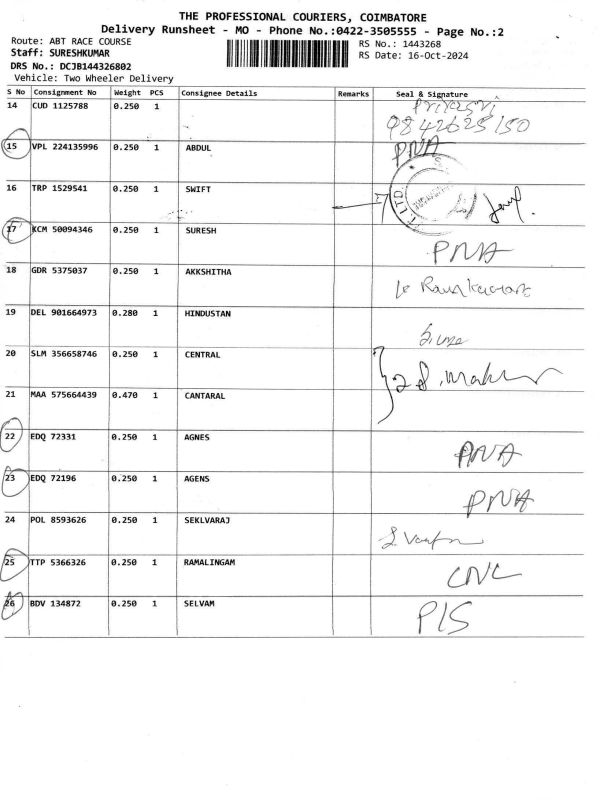 THE PROFESSIONAL COURIERS, COIMBATORE
Delivery Runsheet - MO - Phone No.:0422-3505555 - Page No.:2
Route: ABT RACE COURSE
RS No.: 1443268
Staff: SURESHKUMAR
RS Date: 16-Oct-2024
DRS No.: DCJB144326802
Vehicle: Two Wheeler Delivery
S No Consignment No Weight PCS Consignee Details Remarks Seal & Signature
14 CUD 1125788 0.250 1
9842625150
15 VPL 224135996 0.250 1 ABDUL PNA
16 TRP 1529541 0.250 1 SWIFT
LTD.
17 KCM 50094346 0.250 1 SURESH PNA
18 GDR 5375037 0.250 1 AKKSHITHA
19 DEL 901664973 0.280 1 HINDUSTAN
20 SLM 356658746 0.250 1 CENTRAL
21 MAA 575664439 0.470 1 CANTARAL
22 EDQ 72331 0.250 1 AGNES PNA
23 EDQ 72196 0.250 1 AGENS PNA
24 POL 8593626 0.250 1 SEKLVARAJ
25 TTP 5366326 0.250 1 RAMALINGAM CNC
26 BDV 134872 0.250 1 SELVAM P/S